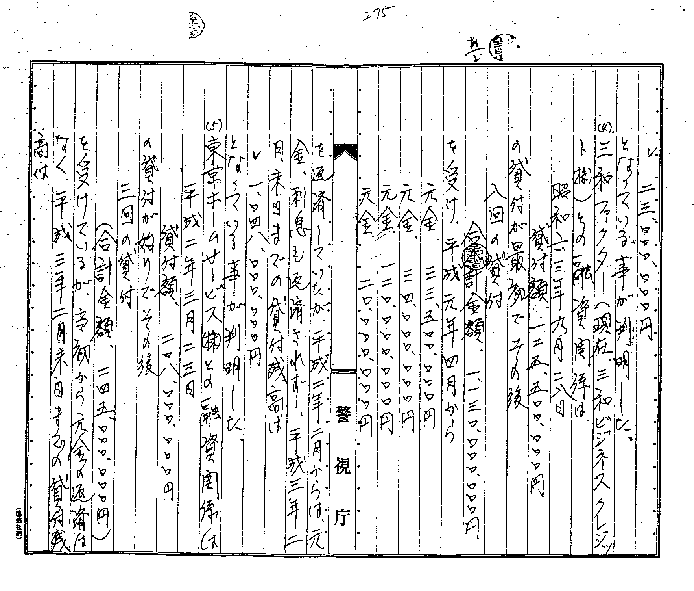 275
二三、〇〇〇、〇〇〇円
となっている事が判明した。
(4)三和ファクター(現在三和ビジネスクレジッ
ト(株))との融資関係は
昭和六三年九月二八日
貸付額、一二五、〇〇〇、〇〇〇円
の貸付が最初でその後
八回の貸付
合計金額、
を受け、平成元年四月から
元金
元金
元金
元金、二〇、〇〇〇、〇〇〇円
警視庁
を返済していたが、平成二年二月からは元
金、利息も返済されず、平成三年二
月末日までの貸付残高は
一、〇四八、〇〇〇、〇〇〇円
となっている事が判明した。
(5)東京ホームサービス(株)との融資関係は
平成二年三月二三日
貸付額、二〇八、〇〇〇、〇〇〇円
の貸付が始めでその後
三回の貸付
(合計金額、二四五、〇〇〇、〇〇〇円)
を受けているが、当初から元金の返済は
なく、平成三年二月末日までの貸付残
高は